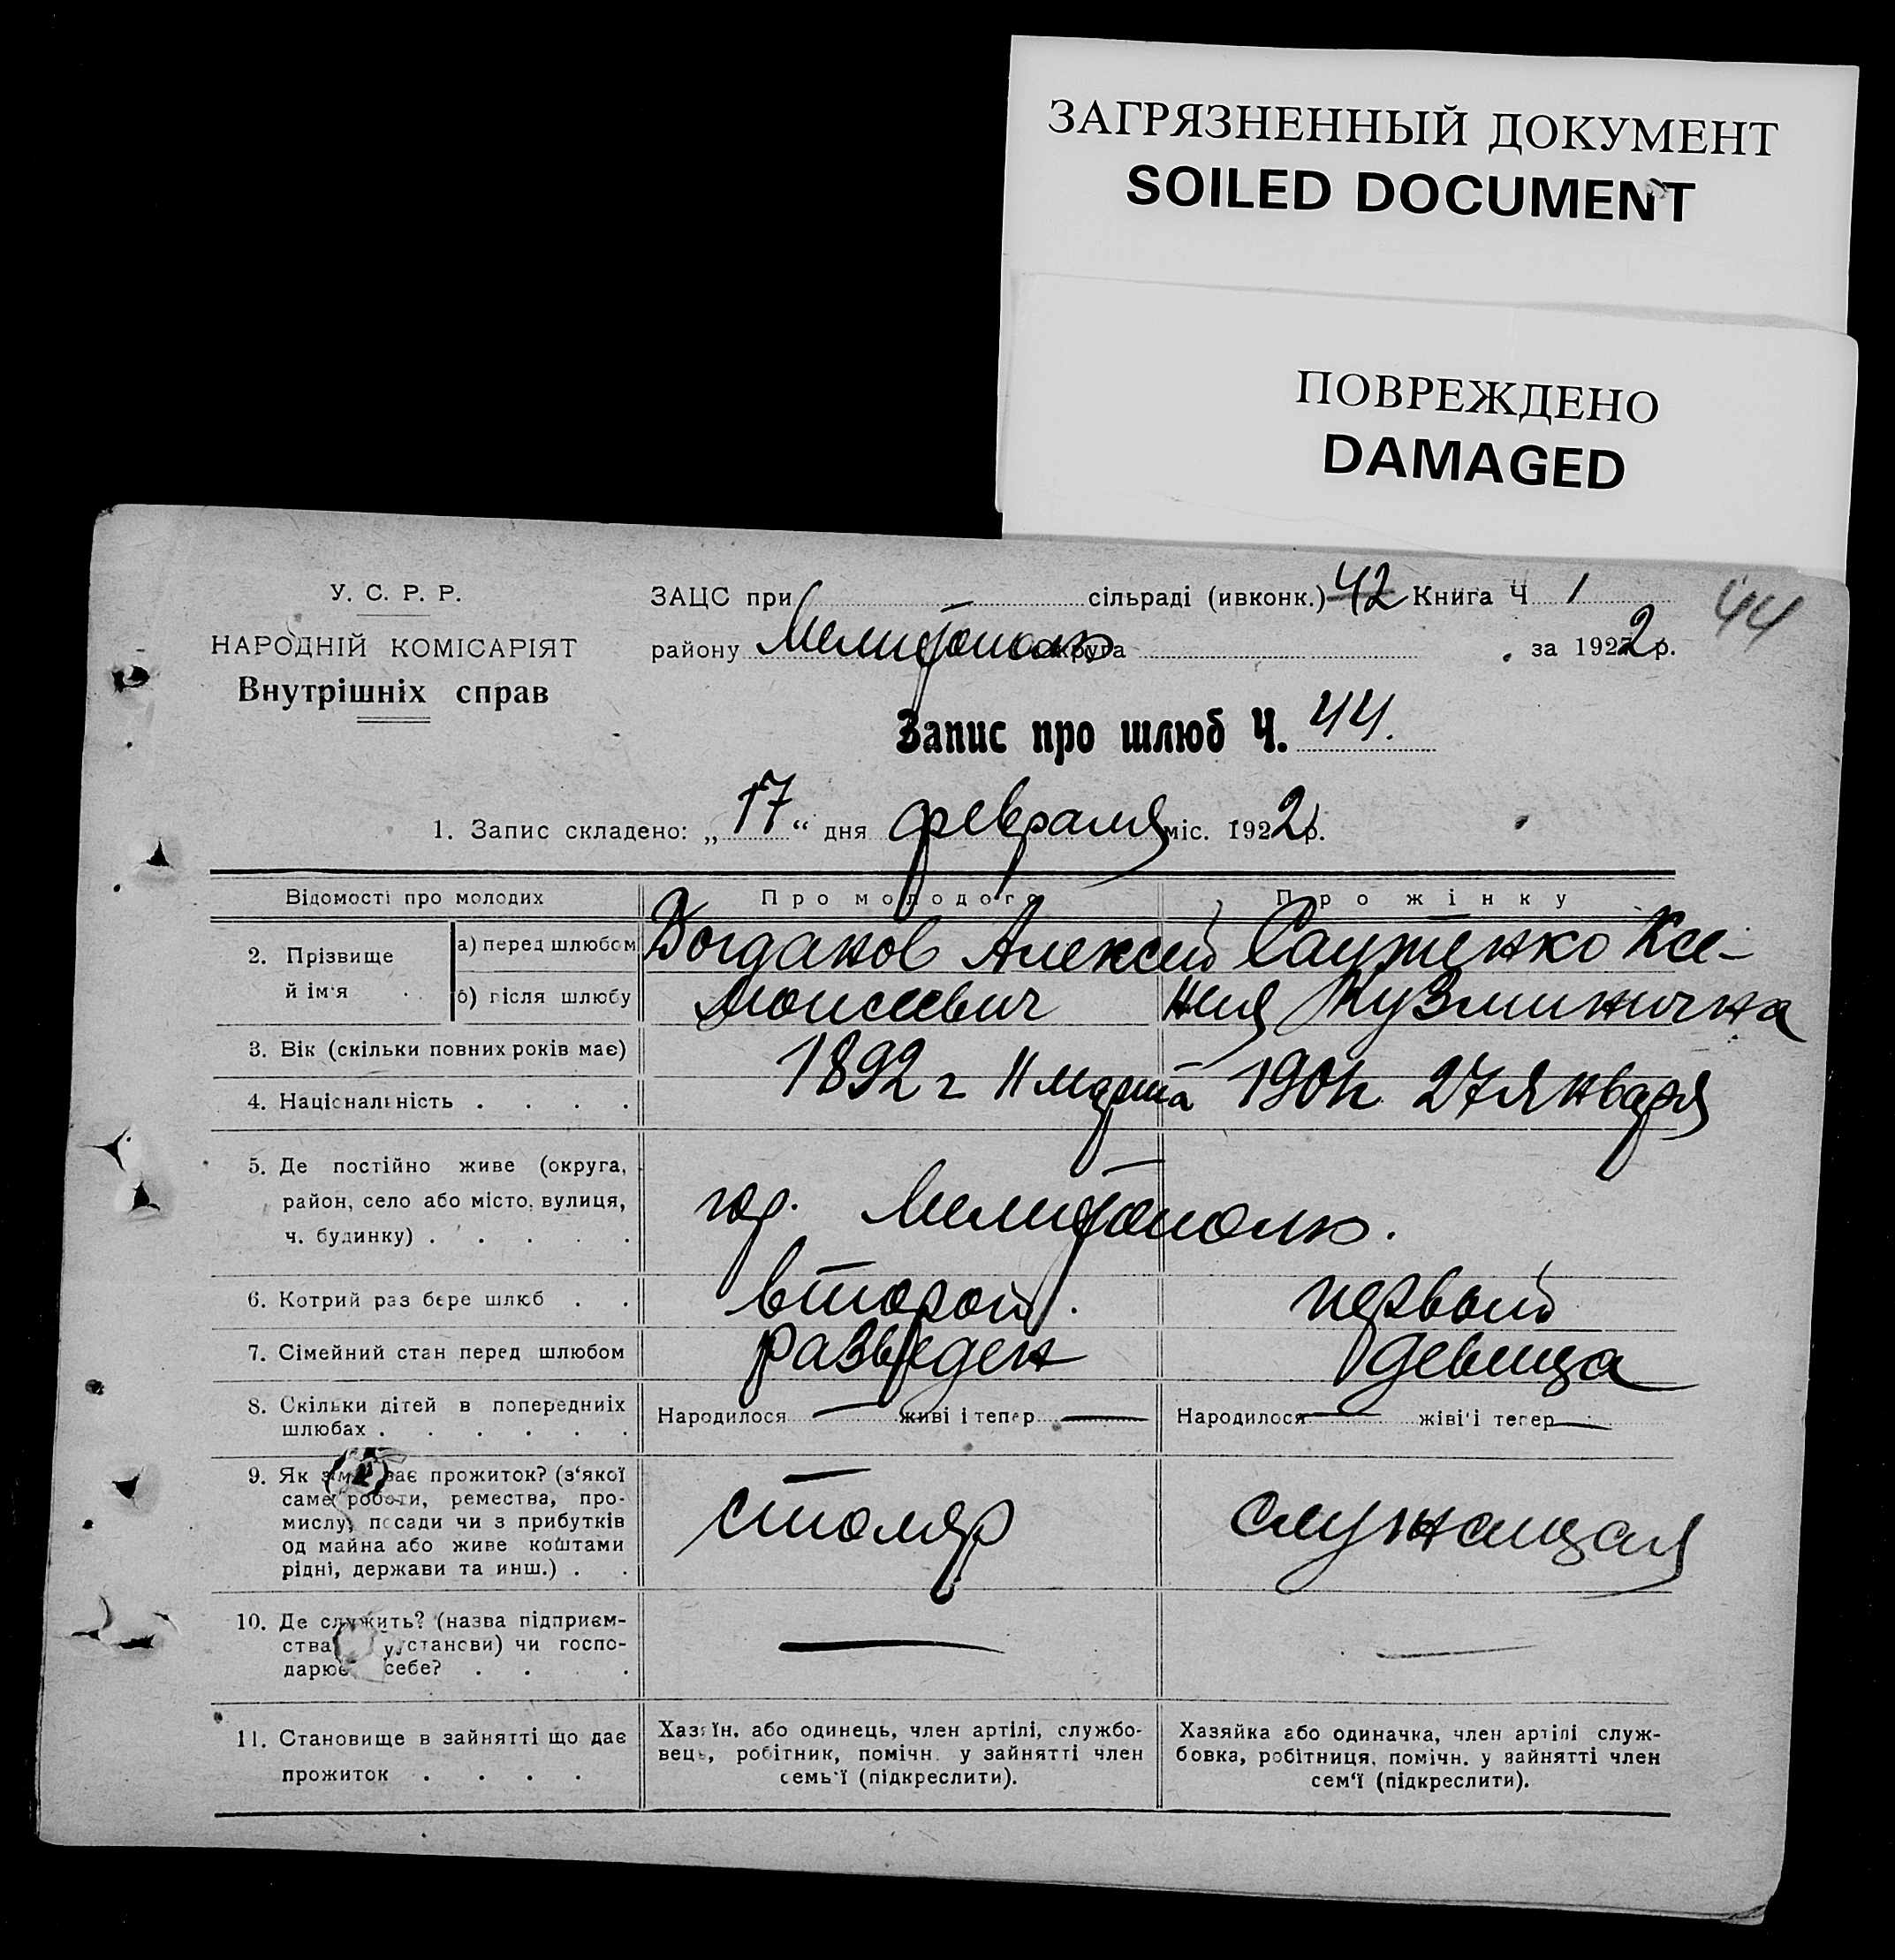 ЗАГРЯЗНЕННЫЙ ДОКУМЕНТ
SOILED DOCUMENT
ПОВРЕЖДЕНО
DAMAGED
У. С. Р. Р.
НАРОДНІЙ КОМІСАРІЯТ
Внутрішніх справ
ЗАЦС при сільраді (ивконк.) 42 Книга Ч 1
44
району Мелитополь округа за 1922 р.
Запис про шлюб Ч. 44.
1. Запис складено: „17“ дня февраля міс. 1922 р.
Відомості про молодих Про молодого Про жінку
2. Прізвище й ім'я а) перед шлюбом б) після шлюбу
Богданов Алексей
Моисеевич
Ксе-
ния Кузминична
3. Вік (скільки повних років має)
4. Національність . . . .
1892 г 11 марта 27 января
5. Де постійно живе (округа,
район, село або місто, вулиця,
ч. будинку) . . . . .
гор. Мелитополь.
6. Котрий раз бере шлюб . . второй. первый
7. Сімейний стан перед шлюбом разведен девица
8. Скільки дітей в попередниіх
шлюбах . . . . . .
Народилося — живі і тепер —
Народилося — жіві'і тепер —
9. Як має прожиток? (з'якої
саме роботи, ремества, про-
мислу, посади чи з прибутків
од майна або живе коштами
рідні, держави та инш.) . .
столяр служащая
10. Де служить? (назва підприєм-
ства установи) чи госпо-
дарює себе? . . . .
— —
11. Становище в зайнятті що дає
прожиток . . . .
Хазяїн, або одинець, член артілі, службо-
вець, робітник, помічн. у зайнятті член
семь'ї (підкреслити).
Хазяйка або одиначка, член артілі служ-
бовка, робітниця, помічн. у зайнятті член
сем'ї (підкреслити).